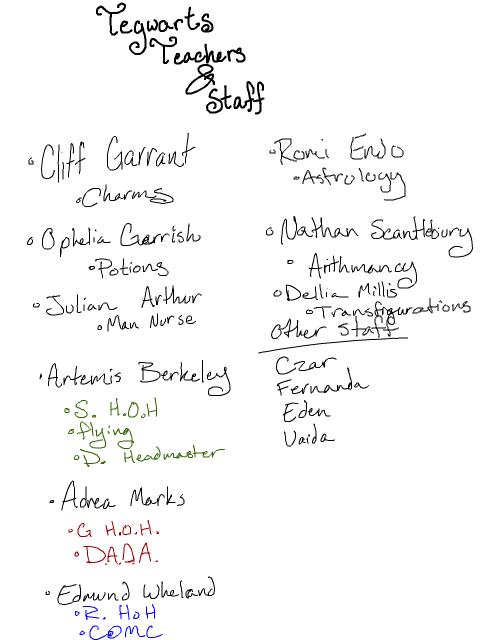 Tegwarts
Teachers
&
Staff
• Cliff Garrant
• Charms
• Ophelia Gerrish
• Potions
• Julian Arthur
• Man Nurse
• Artemis Berkeley
• S. H.O.H
• flying
• D. Headmaster
• Adrea Marks
• G H.O.H.
• D.A.D.A.
• Edmund Wheland
• R. HoH
• COMC
• Romi Endo
• Astrology
• Nathan Scantlebury
• Arithmancy
• Dellia Millis
• Transfigurations
Other Staff
Czar
Fernanda
Eden
Vaida